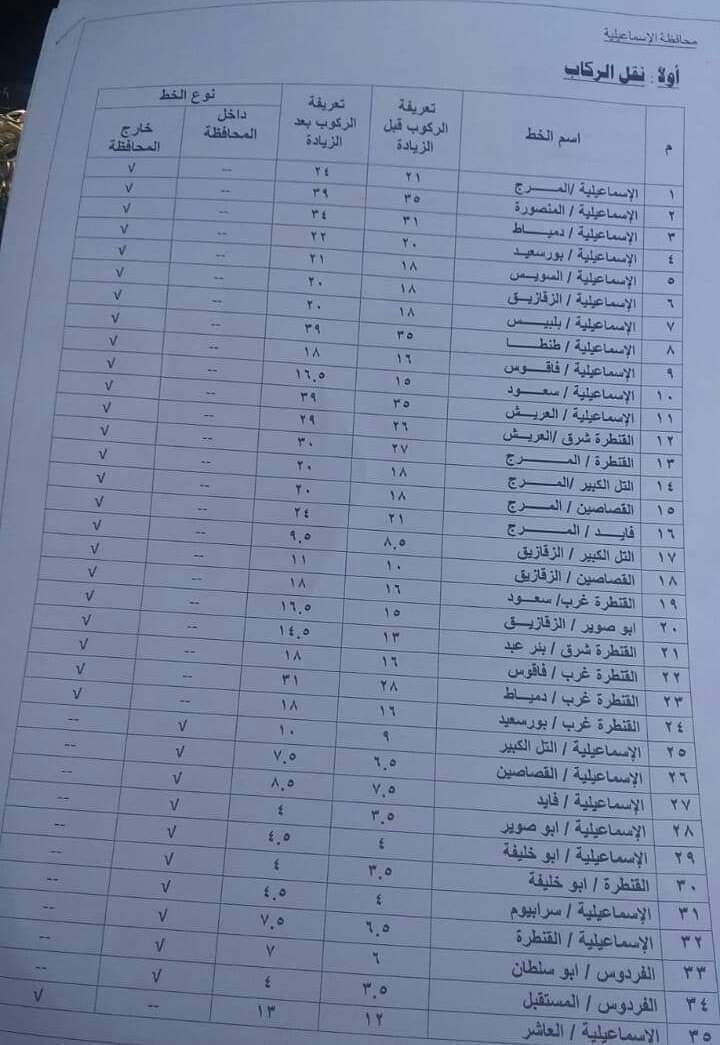 محافظة الإسماعيلية
أولاً : نقل الركاب
م اسم الخط تعريفة الركوب قبل الزيادة تعريفة الركوب بعد الزيادة نوع الخط
داخل المحافظة خارج المحافظة
١ الإسماعيلية /المـــــرج ٢١ ٢٤ -- √
٢ الإسماعيلية / المنصورة ٣٥ ٣٩ -- √
٣ الإسماعيلية / دميـــاط ٣١ ٣٤ -- √
٤ الإسماعيلية / بورسعيد ٢٠ ٢٢ -- √
٥ الإسماعيلية / السويس ١٨ ٢١ -- √
٦ الإسماعيلية / الزقازيق ١٨ ٢٠ -- √
٧ الإسماعيلية / بلبيـــس ١٨ ٢٠ -- √
٨ الإسماعيلية / طنطـــا ٣٥ ٣٩ -- √
٩ الإسماعيلية / فاقـــوس ١٦ ١٨ -- √
١٠ الإسماعيلية / سعـــود ١٥ ١٦.٥ -- √
١١ الإسماعيلية / العريش ٣٥ ٣٩ -- √
١٢ القنطرة شرق /العريش ٢٦ ٢٩ -- √
١٣ القنطرة / المـــــرج ٢٧ ٣٠ -- √
١٤ التل الكبير /المـــــرج ١٨ ٢٠ -- √
١٥ القصاصين / المـــــرج ١٨ ٢٠ -- √
١٦ فايـــد / المـــــرج ٢١ ٢٤ -- √
١٧ التل الكبير / الزقازيق ٨.٥ ٩.٥ -- √
١٨ القصاصين / الزقازيق ١٠ ١١ -- √
١٩ القنطرة غرب/ سعـــود ١٦ ١٨ -- √
٢٠ ابو صوير / الزقازيـــق ١٥ ١٦.٥ -- √
٢١ القنطرة شرق / بئر عبد ١٣ ١٤.٥ -- √
٢٢ القنطرة غرب / فاقوس ١٦ ١٨ -- √
٢٣ القنطرة غرب / دميـــاط ٢٨ ٣١ -- √
٢٤ القنطرة غرب / بورسعيد ١٦ ١٨ -- √
٢٥ الإسماعيلية / التل الكبير ٩ ١٠ √ --
٢٦ الإسماعيلية / القصاصين ٦.٥ ٧.٥ √ --
٢٧ الإسماعيلية / فايد ٧.٥ ٨.٥ √ --
٢٨ الإسماعيلية / ابو صوير ٣.٥ ٤ √ --
٢٩ الإسماعيلية / ابو خليفة ٤ ٤.٥ √ --
٣٠ القنطرة / ابو خليفة ٣.٥ ٤ √ --
٣١ الإسماعيلية / سرابيوم ٤ ٤.٥ √ --
٣٢ الإسماعيلية / القنطرة ٦.٥ ٧.٥ √ --
٣٣ الفردوس / ابو سلطان ٦ ٧ √ --
٣٤ الفردوس / المستقبل ٣.٥ ٤ √ --
٣٥ الاسماعيلية / العاشر ١٢ ١٣ -- √